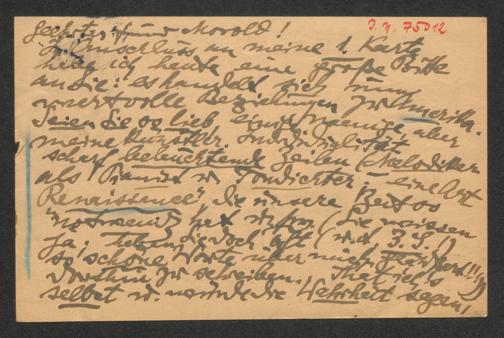 J. N. 75012
Geehrter Freund Morold!
Im Anschluss an meine 1. Karte
habe ich heute eine große Bitte
an Sie: es handelt sich um
wertvolle Beziehungen zu Amerika.
Seien Sie so lieb einige wenige, aber
meine künstler. Individualität
scharf beleuchtende Zeilen (Melodiker
als Pianist u. Tondichter – eine Art
"Renaissance", die unsere Zeit so
notwendig hat
ja, haben Sie doch oft (
so schöne Worte über mich
zu schreiben. Ich
selbst u. würde die Wahrheit sagen,